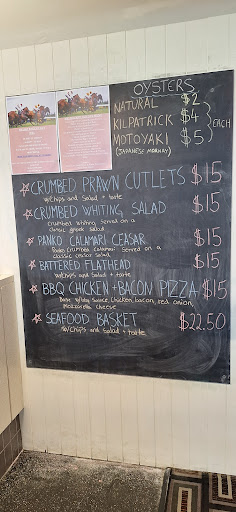 OYSTERS
NATURAL $2
KILPATRICK $4 EACH
MOTOYAKI $5
(JAPANESE MORNAY)
CRUMBED PRAWN CUTLETS $15
w/chips and Salad + tarte
CRUMBED WHITING SALAD $15
crumbed whiting served on a
classic greek salad
PANKO CALAMARI CEASAR $15
Panko crumbed calamari served on a
classic ceasar salad
BATTERED FLATHEAD $15
w/chips and Salad + tarte
BBQ CHICKEN + BACON PIZZA $15
sauce, chicken, bacon, red onion,
mozzarella cheese
SEAFOOD BASKET $22.50
w/chips and Salad + tarte